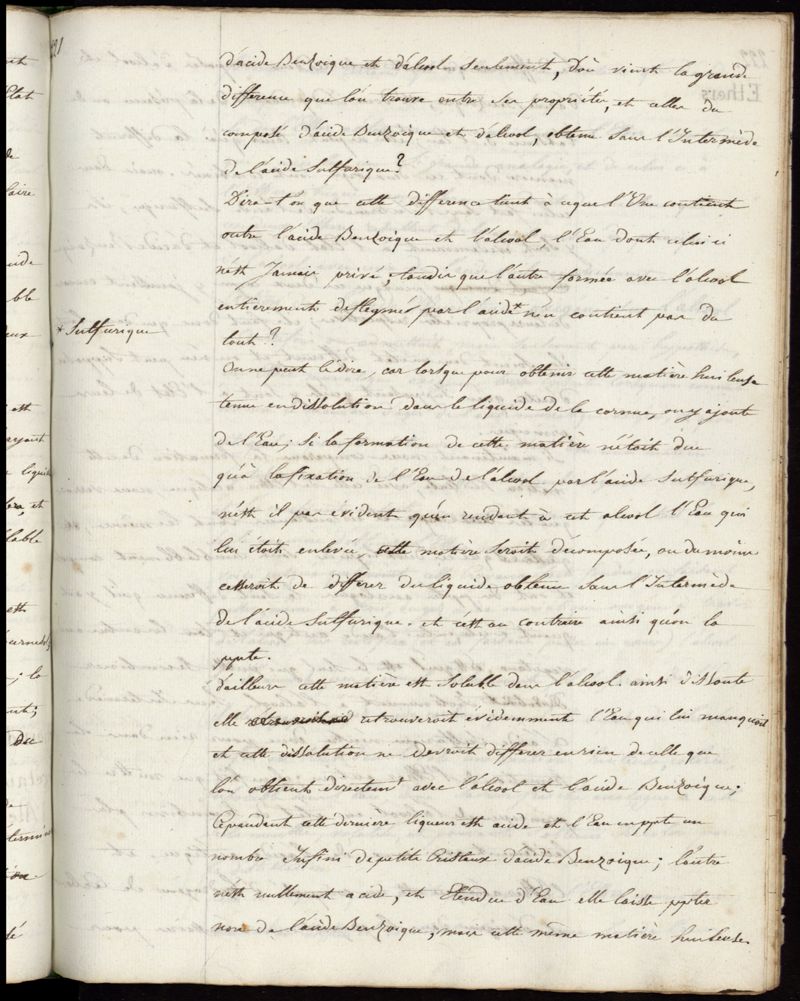 d'acide Benzoique et d'alcool seulement, D'où vient la grande
difference que l'on trouve entre ses proprietés, et celles du
composé d'acide Benzoique et d'alcool, obtenu sans l'Intermède
de l'acide Sulfurique?
Dira-t'on que cette difference tient à ce que l'Une contient
outre l'acide Benzoique et l'alcool, l'Eau dont celui ci
n'est Jamais privé; tandis que l'autre formée avec l'alcool
entierement deflegmés par l'acide* n'en contient pas du
* Sulfurique
tout?
On ne peut le dire, car lorsque pour obtenir cette matière huileuse
tenue en dissolution dans le liquide de la cornue, on y ajoute
de l'Eau; Si la formation de cette matière n'étoit due
qu'à la fixation de l'Eau de l'alcool par l'acide Sulfurique,
n'est il pas évident qu'en rendant à cet alcool l'Eau qui
lui étoit enlevée, cette matière seroit décomposée, ou du moins
cesseroit de differer du liquide obtenu sans l'Intermède
de l'acide Sulfurique. et c'est au contraire ainsi qu'on la
ppte.
D'ailleurs cette matière est Soluble dans l'alcool. ainsi dissoute
elle retrouveroit évidemment l'Eau qui lui manquoit
et cette dissolution ne devroit differer en rien de celle que
l'on obtient directemt avec l'alcool et l'acide Benzoique;
Cependant cette dernière liqueur est acide et l'Eau en ppte un
nombre Infini de petits Cristaux d'acide Benzoique; l'autre
n'est nullement acide, et Etendue d'Eau elle laisse ppter
non de l'acide Benzoique, mais cette même matière huileuse